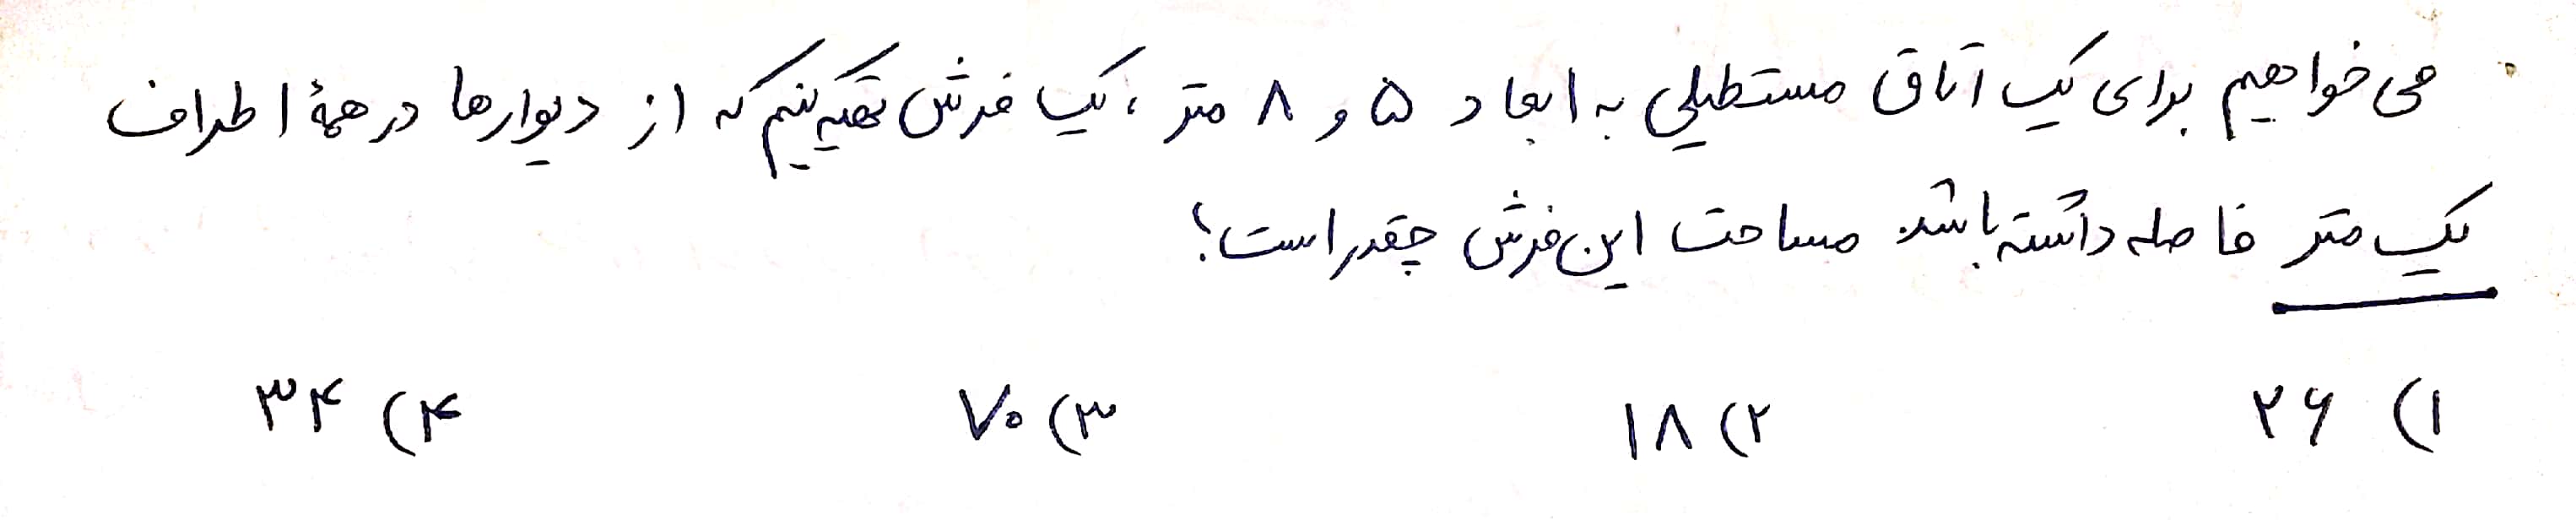 می‌خواهیم برای یک اتاق مستطیلی به ابعاد ۵ و ۸ متر، یک فرش تهیه کنیم که از دیوارها در همهٔ اطراف
یک متر فاصله داشته باشد. مساحت این فرش چقدر است؟
۱) ۲۶ ۲) ۱۸ ۳) ۷۰ ۴) ۳۴